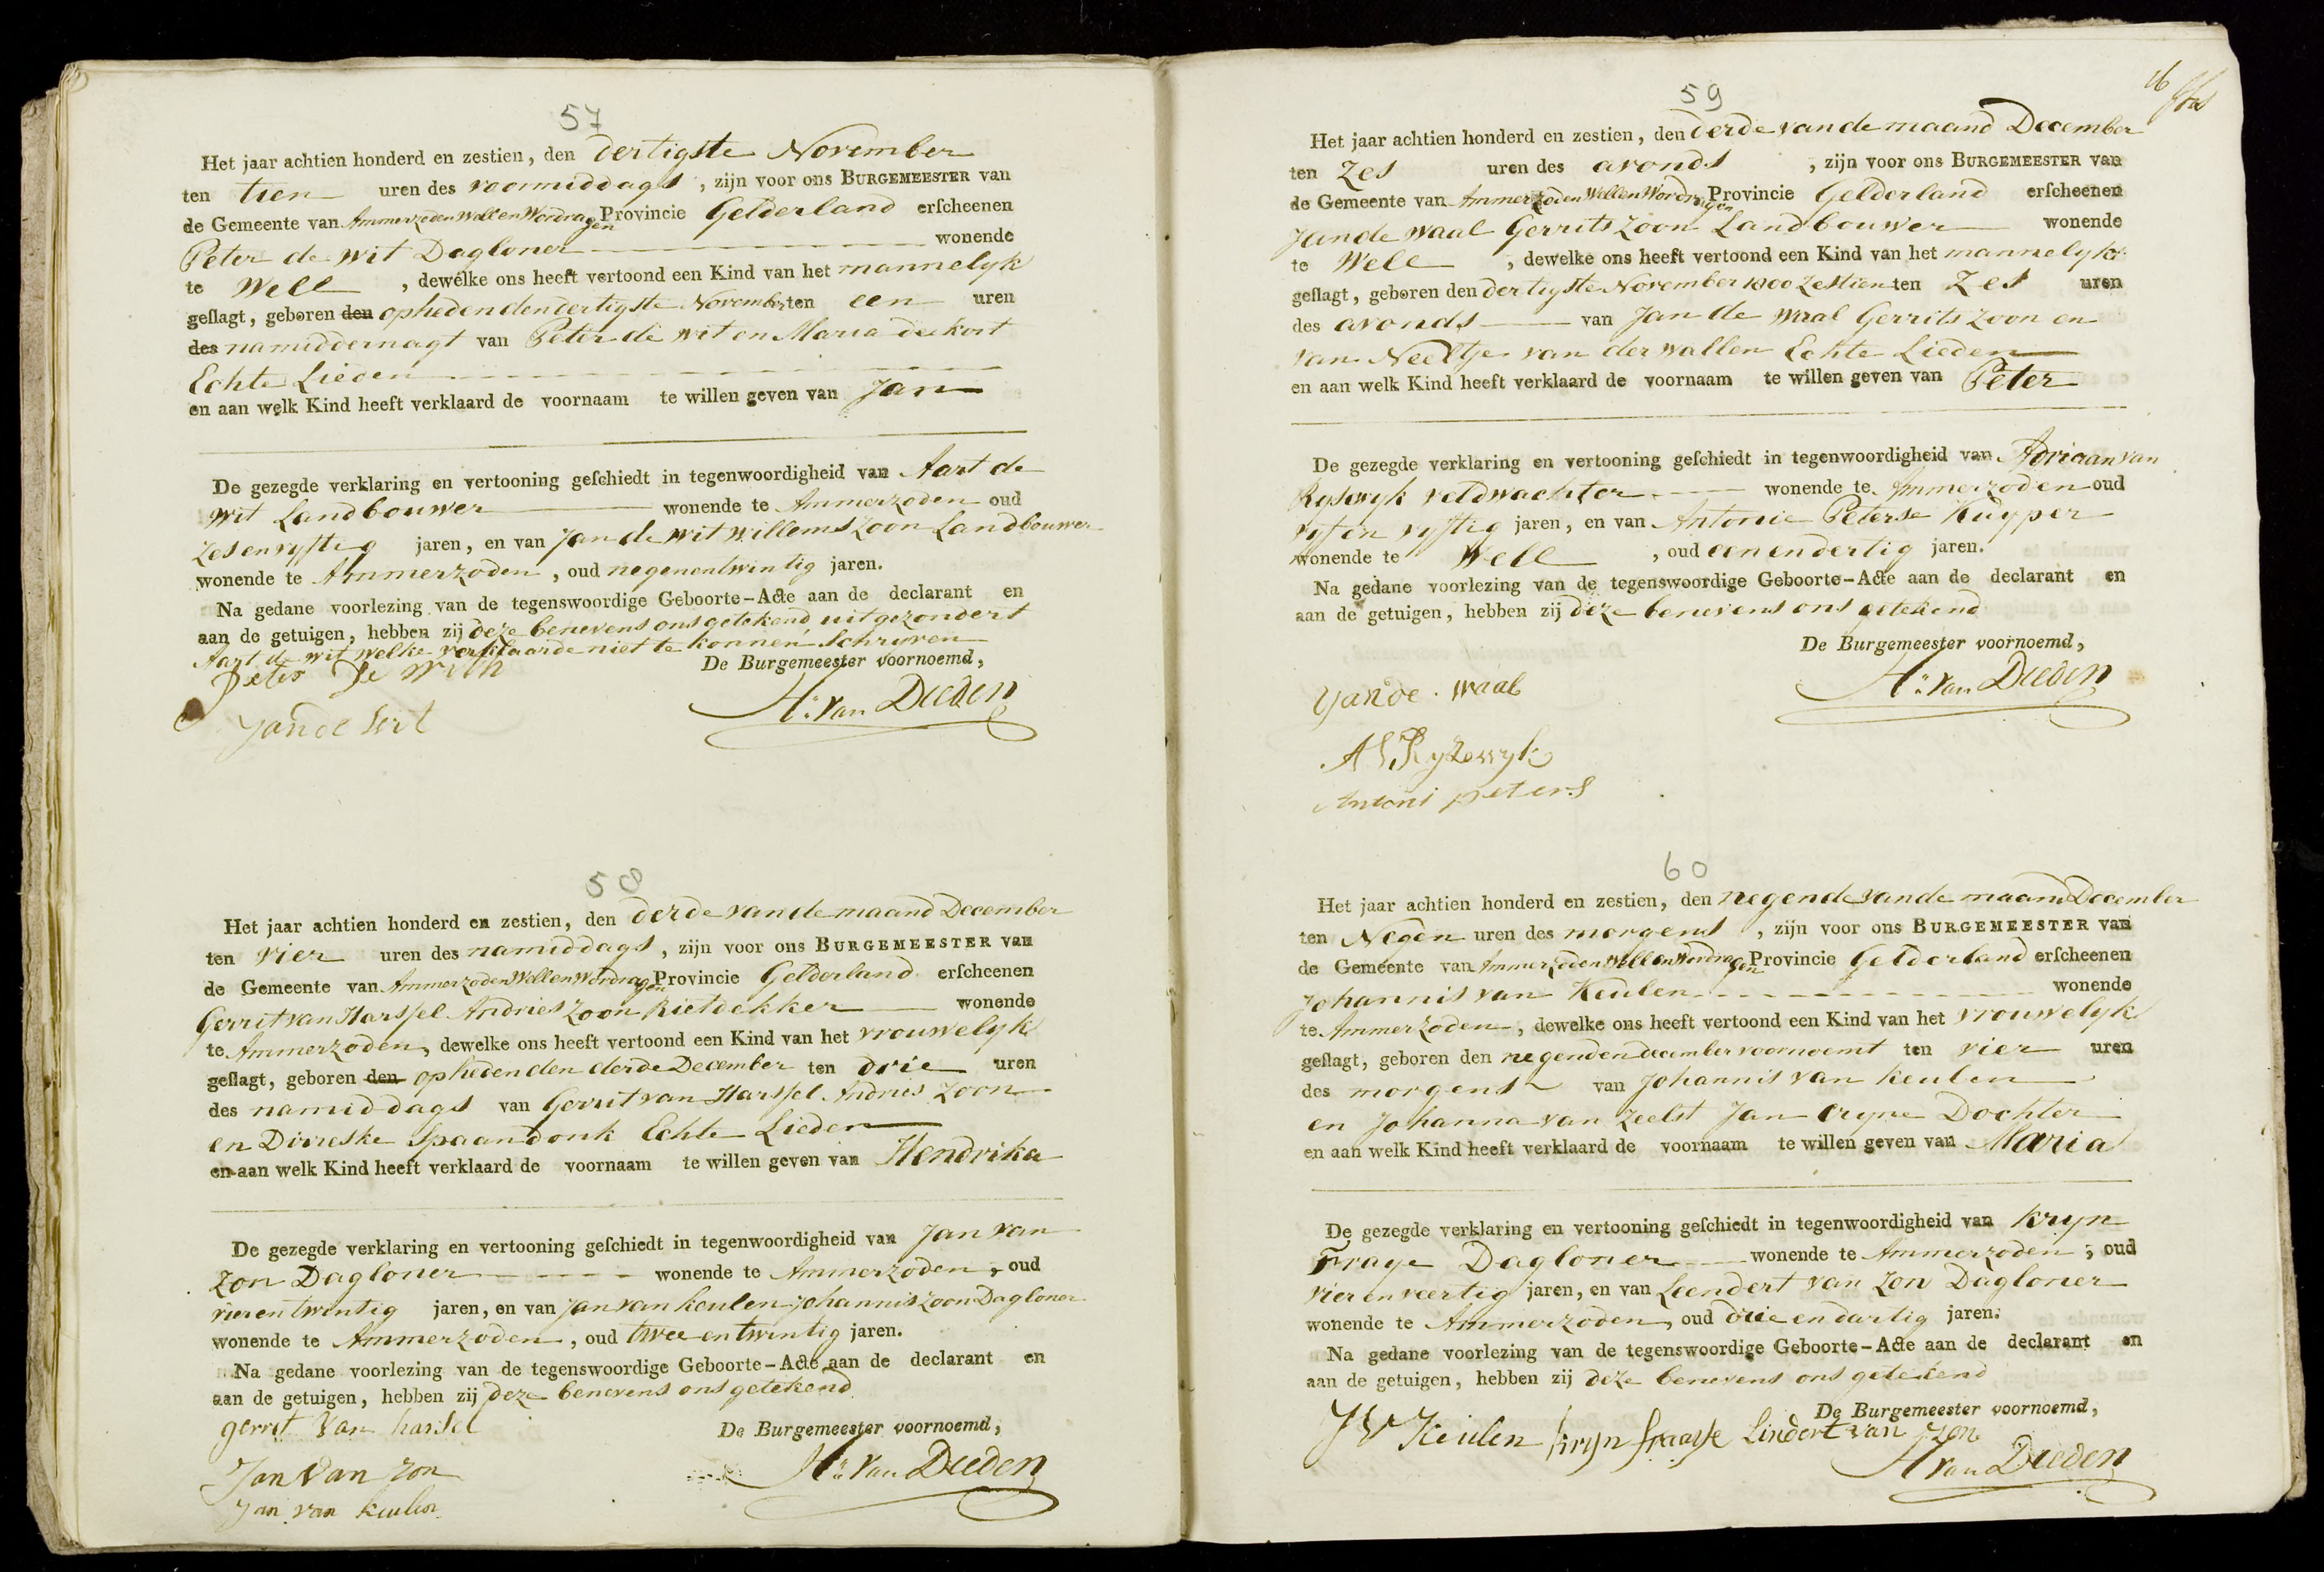 57
Het jaar achtien honderd en zestien, den dertigste November
ten tien uren des voormiddags, zijn voor ons BURGEMEESTER van
de Gemeente van Ammerzoden Well en Wordragen Provincie Gelderland erscheenen
Peter de Wit Dagloner wonende
te Well, dewelke ons heeft vertoond een Kind van het mannelyk
geslagt, geboren den op heden den dertigste November ten een uren
des namiddernagt van Peter de wit en Maria de kort
Echte Lieden
en aan welk Kind heeft verklaard de voornaam te willen geven van Jan
De gezegde verklaring en vertooning geschiedt in tegenwoordigheid van Aart de
Wit Landbouwer wonende te Ammerzoden oud
zes en vyftig jaren, en van Jan de Wit Willems zoon Landbouwer
wonende te Ammerzoden, oud negenentwintig jaren.
Na gedane voorlezing van de tegenswoordige Geboorte-Acte aan de declarant en
aan de getuigen, hebben zij deze benevens ons getekend uitgezondert
Aart de Wit welke verklaarde niet te konnen Schryven
De Burgemeester voornoemd,
Peter De With
H. van Dieden
Jan de Wit
58
Het jaar achtien honderd en zestien, den derde van de maand December
ten vier uren des namiddags, zijn voor ons BURGEMEESTER van
de Gemeente van Ammerzoden Well en Wordragen Provincie Gelderland erscheenen
Gerrit van Harssel Andries zoon Rietdekker wonende
te Ammerzoden, dewelke ons heeft vertoond een Kind van het vrouwelyk
geslagt, geboren den op heden den derde December ten drie uren
des namiddags van Gerrit van Harssel Andries zoon
en Dirreske Spaandonk Echte Lieden
en aan welk Kind heeft verklaard de voornaam te willen geven van Hendrika
De gezegde verklaring en vertooning geschiedt in tegenwoordigheid van Jan van
Zon Dagloner wonende te Ammerzoden, oud
vierentwintig jaren, en van Jan van keulen Johannis zoon Dagloner
wonende te Ammerzoden, oud twee en twintig jaren.
Na gedane voorlezing van de tegenswoordige Geboorte-Acte aan de declarant en
aan de getuigen, hebben zij deze benevens ons getekend
De Burgemeester voornoemd,
gerrit van harsel
H. van Dieden
Jan van zon
Jan van keulen
16
59
Het jaar achtien honderd en zestien, den derde van de maand December
ten zes uren des avonds, zijn voor ons BURGEMEESTER van
de Gemeente van Ammerzoden Well en Wordragen Provincie Gelderland erscheenen
Jan de Waal Gerrits zoon Landbouwer wonende
te Well, dewelke ons heeft vertoond een Kind van het mannelyk
geslagt, geboren den dertigste November 1800 zestien ten zes uren
des avonds van Jan de Waal Gerrits zoon en
van Neeltje van der Wallen Echte Lieden
en aan welk Kind heeft verklaard de voornaam te willen geven van Peter
De gezegde verklaring en vertooning geschiedt in tegenwoordigheid van Adriaan van
Ryswyk veldwachter wonende te Ammerzoden oud
vyf en vyftig jaren, en van Antonie Peterse Kuyper
wonende te Well, oud een en dertig jaren.
Na gedane voorlezing van de tegenswoordige Geboorte-Acte aan de declarant en
aan de getuigen, hebben zij deze benevens ons getekend
De Burgemeester voornoemd,
Jan de Waal
H. van Dieden
A V Ryzewyk
Antoni peters
60
Het jaar achtien honderd en zestien, den negende van de maand December
ten Negen uren des morgens, zijn voor ons BURGEMEESTER van
de Gemeente van Ammerzoden Well en Wordragen Provincie Gelderland erscheenen
Johannis van Keulen wonende
te Ammerzoden, dewelke ons heeft vertoond een Kind van het vrouwelyk
geslagt, geboren den negenden december voornoemt ten vier uren
des morgens van Johannis van keulen
en Johanna van Zeelst Jan Dochter
en aan welk Kind heeft verklaard de voornaam te willen geven van Maria
De gezegde verklaring en vertooning geschiedt in tegenwoordigheid van Kryn
Fraye Dagloner wonende te Ammerzoden, oud
vier en veertig jaren, en van Leendert van Zon Dagloner
wonende te Ammerzoden, oud drie en dartig jaren.
Na gedane voorlezing van de tegenswoordige Geboorte-Acte aan de declarant en
aan de getuigen, hebben zij deze benevens ons getekend
De Burgemeester voornoemd,
J V Keulen kryn Lindert van zon
H van Dieden